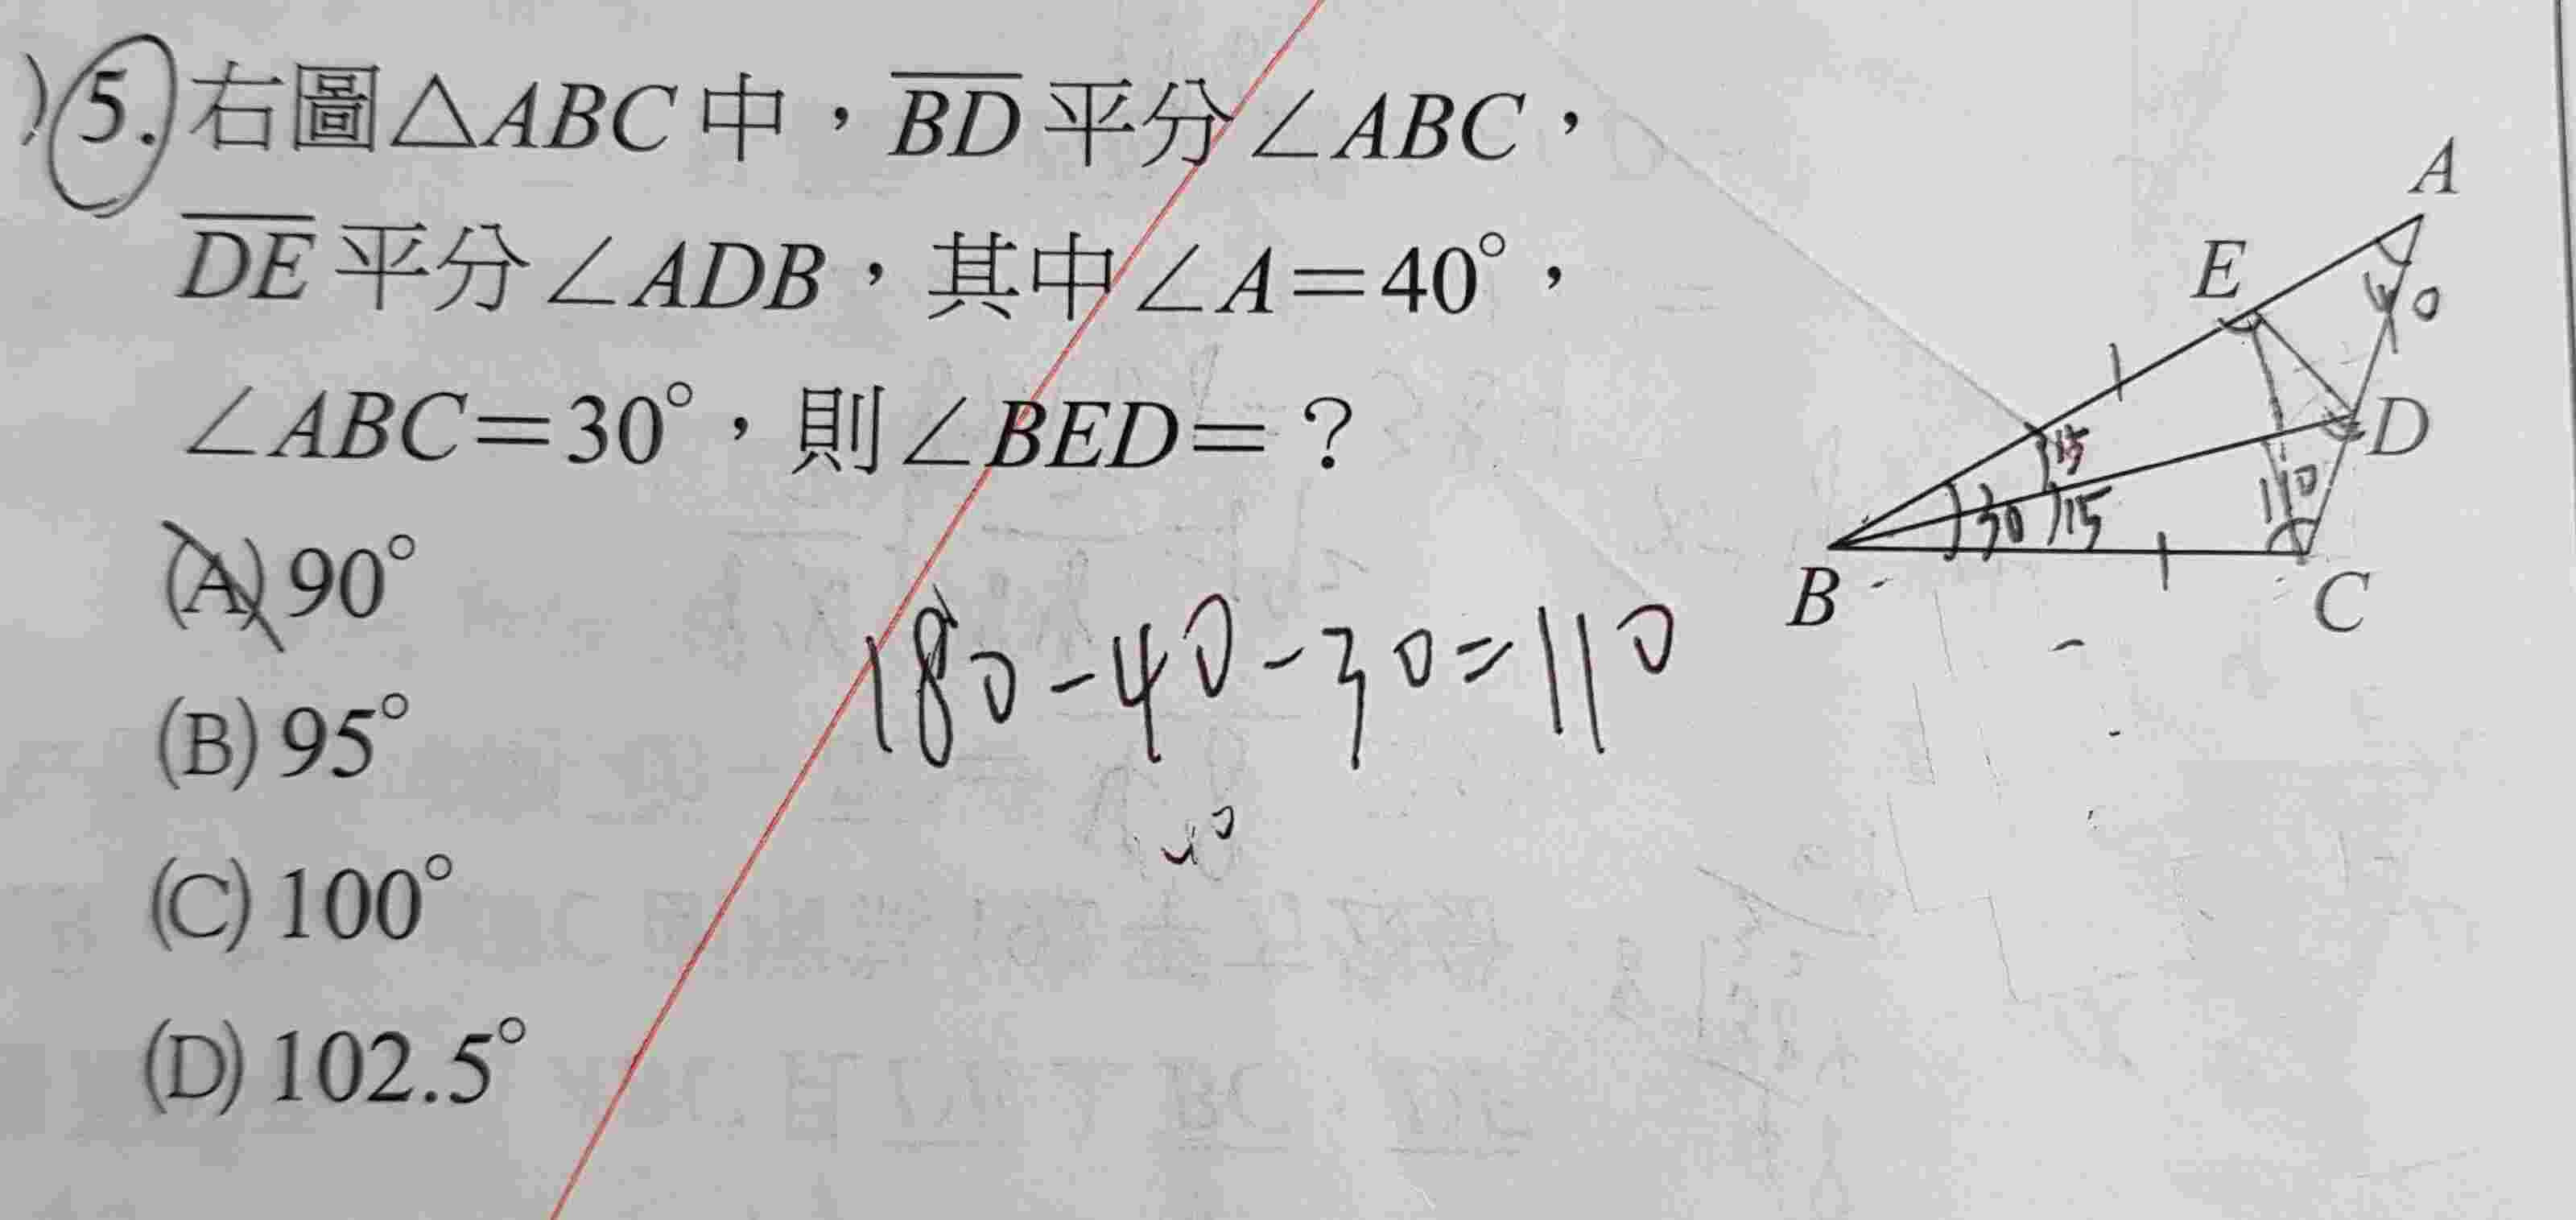 )5. 右圖△ABC中，BD平分∠ABC，
DE平分∠ADB，其中∠A=40°，
∠ABC=30°，則∠BED=？
(A) 90°
(B) 95°
(C) 100°
(D) 102.5°
180-40-30=110
40
A
E
40
D
15
30
15
110
B
C